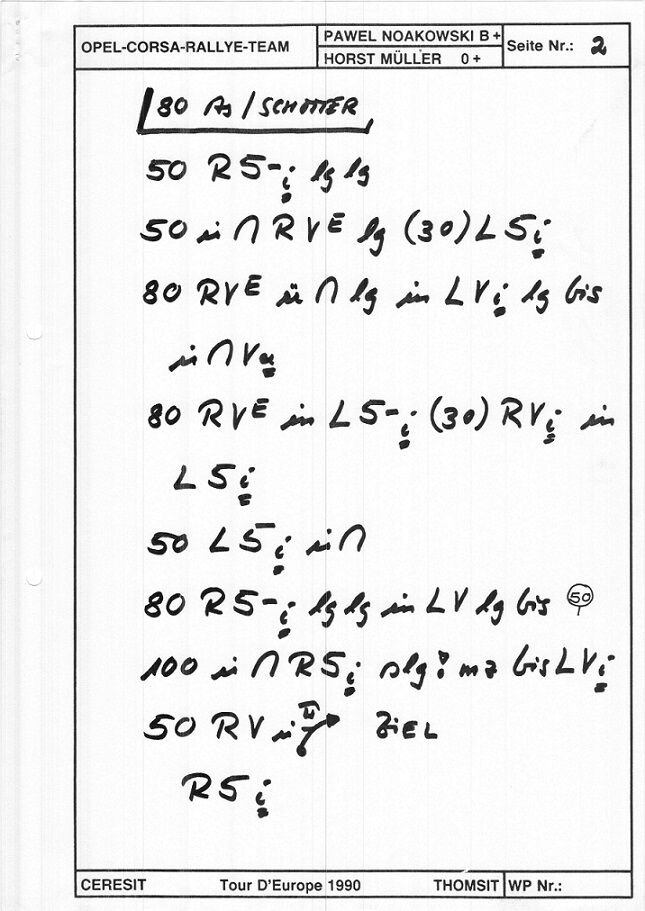 OPEL-CORSA-RALLYE-TEAM
PAWEL NOAKOWSKI B +
HORST MÜLLER 0 +
Seite Nr.: 2
80 As / SCHOTTER
50 R5-i lg lg
50 ü ∩ RVE lg (30) L5i
80 RVE ü ∩ lg in LVi lg bis
ü ∩ Vu
80 RVE in L5-i (30) RVi in
L5i
50 L5i ü ∩
80 R5-i lg lg in LV lg bis 50
100 ü ∩ R5i slg ! mz bis LVi
50 RV ü ZIEL
R5i
CERESIT Tour D'Europe 1990 THOMSIT WP Nr.: